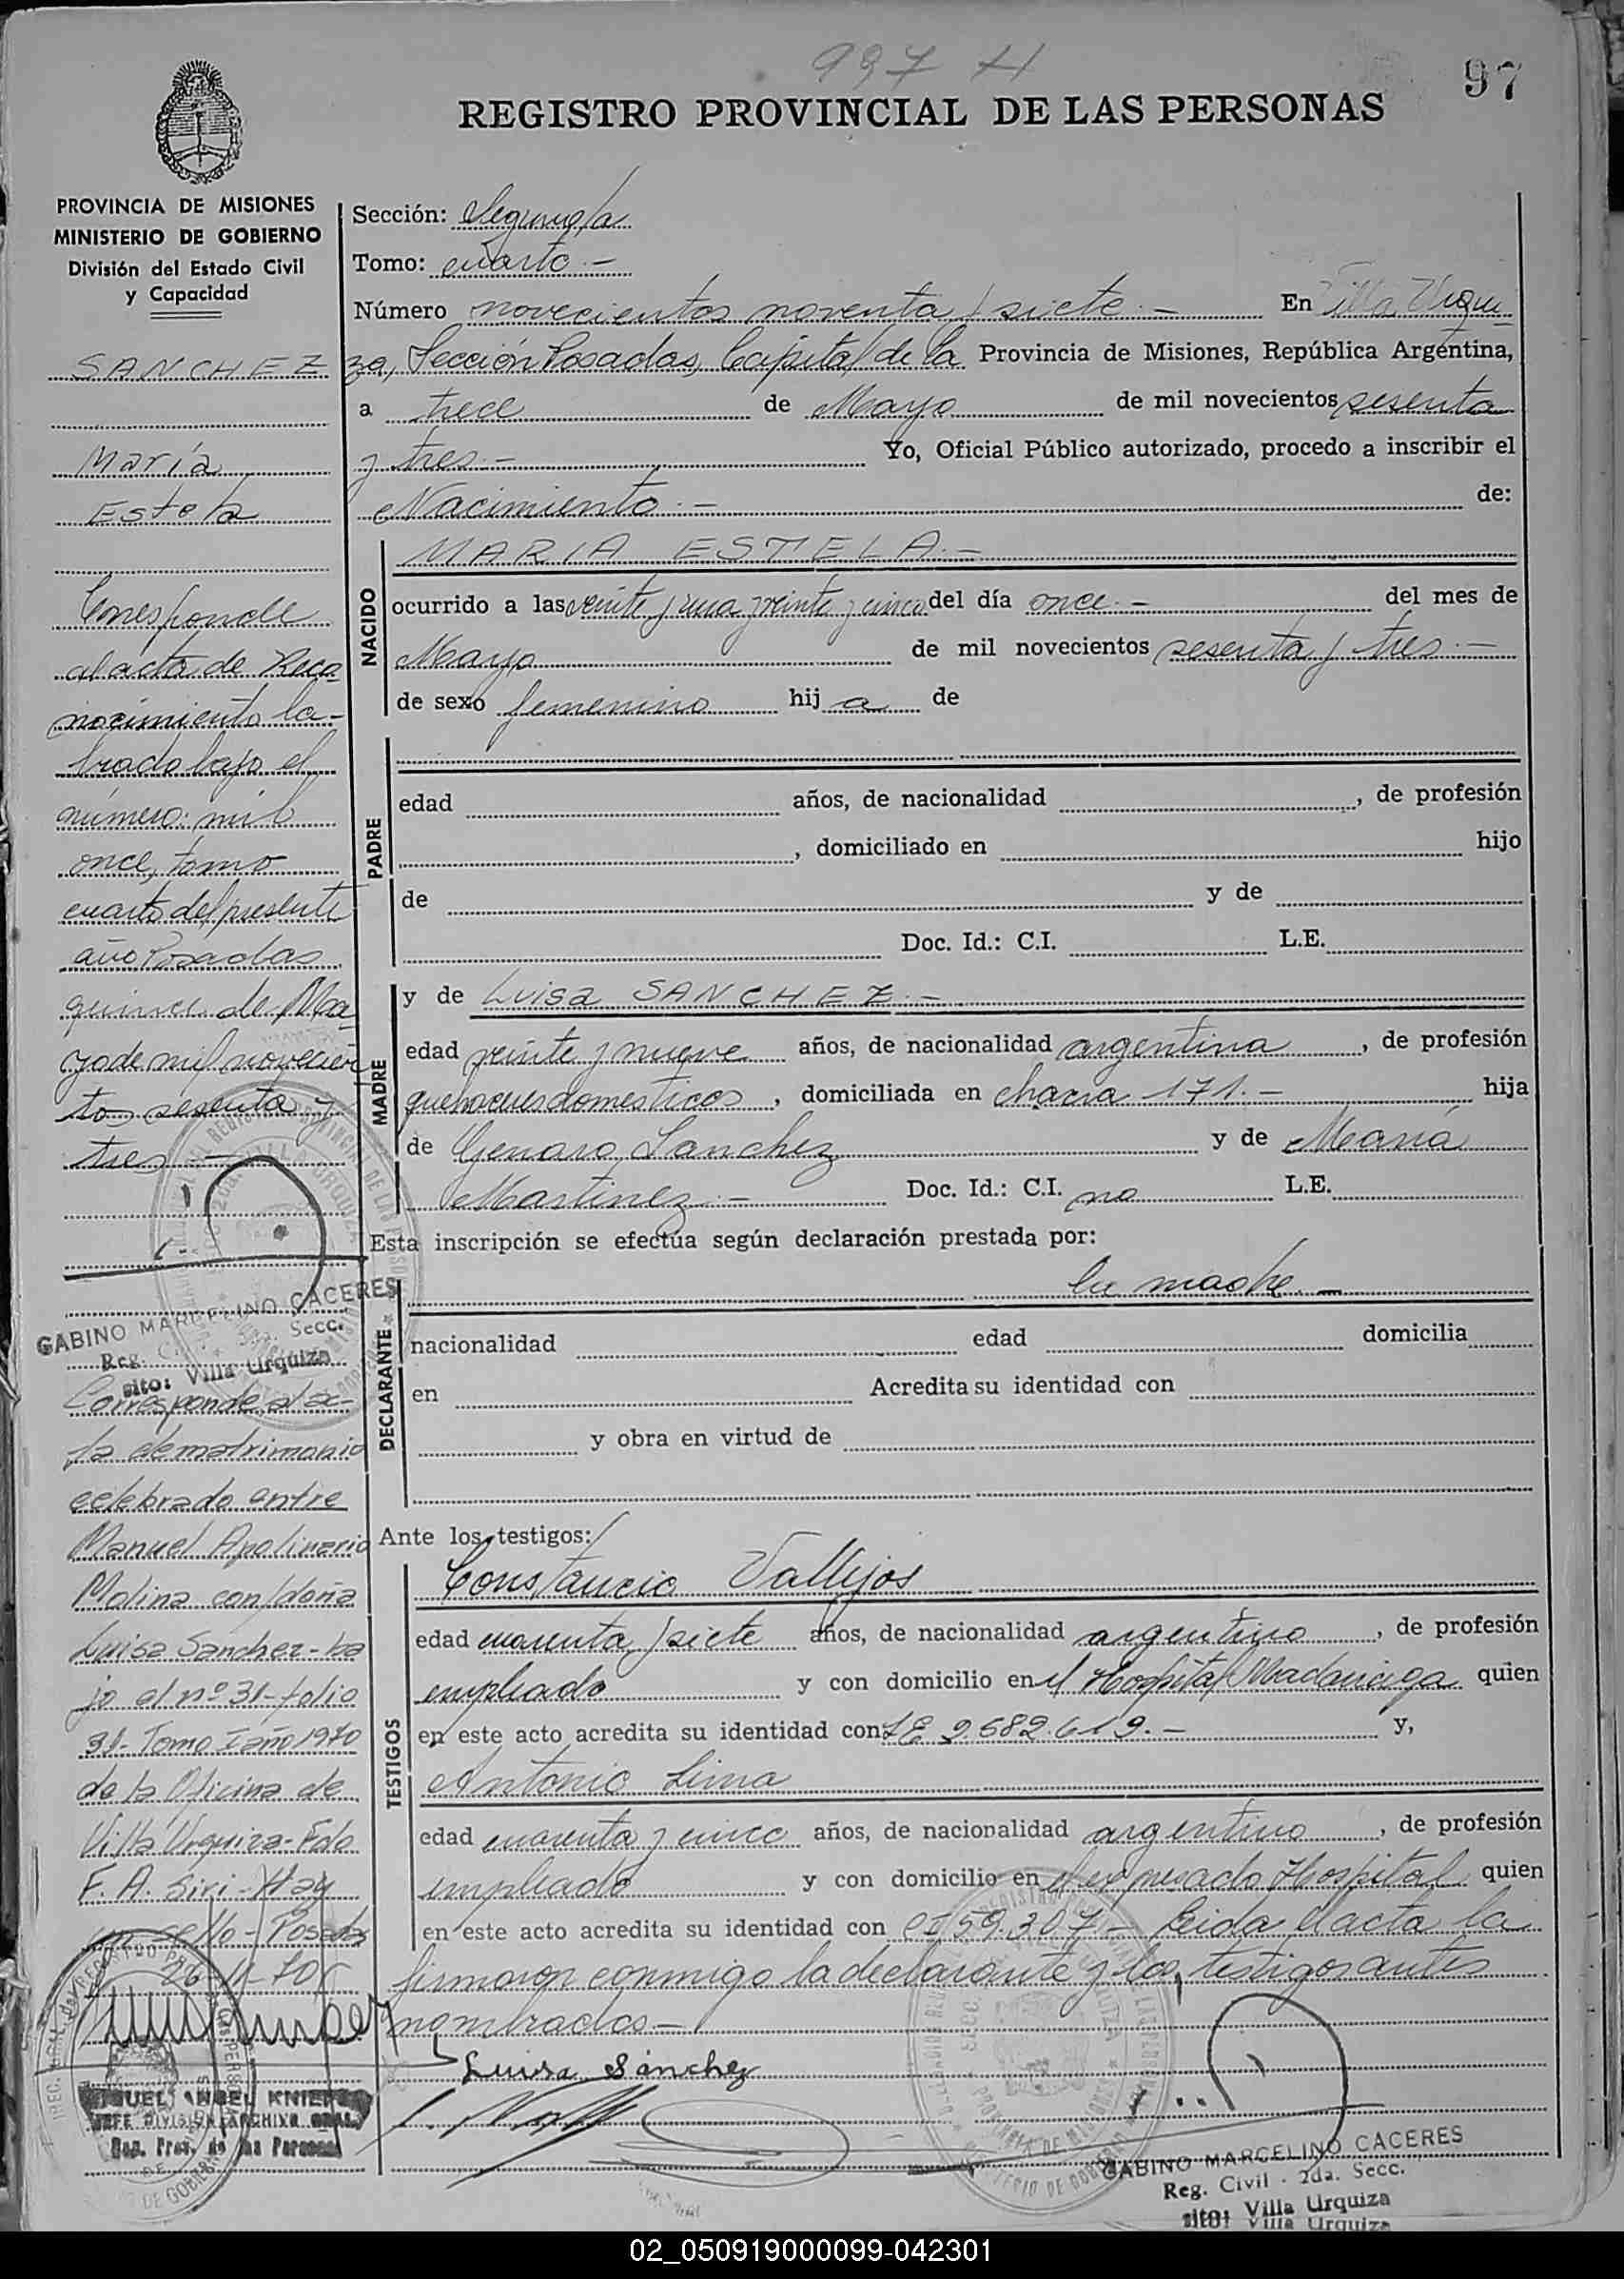 997 H
97
REGISTRO PROVINCIAL DE LAS PERSONAS
PROVINCIA DE MISIONES
MINISTERIO DE GOBIERNO
División del Estado Civil
y Capacidad
SANCHEZ
María
Estela
Corresponde
al acta de Reco-
nocimiento la-
brado bajo el
número: mil
once, tomo
cuarto del presente
año Posadas
quince de Ma-
yo de mil novecien
tos sesenta y
tres -
GABINO MARCELINO CACERES
Reg. Civil 2da. Secc.
sito: Villa Urquiza
Corresponde al ac-
ta de matrimonio
celebrado entre
Manuel Apolinario
Molina con doña
Luisa Sanchez - ba
jo el nº 31 - folio
31 - Tomo I año 1970
de la Oficina de
Villa Urquiza - Fdo
F. A. Siri - Hay
un sello - Posadas
26-11-70
MIGUEL ANGEL KNIE
JEFE DIVISION ARCHIVO GRAL.
Reg. Prov. de las Personas
Sección: Segunda
Tomo: cuarto -
Número novecientos noventa y siete - En Villa Urqui-
za, Sección Posadas, Capital de la Provincia de Misiones, República Argentina,
a trece de Mayo de mil novecientos sesenta
y tres - Yo, Oficial Público autorizado, procedo a inscribir el
Nacimiento - de:
NACIDO
MARIA ESTELA -
ocurrido a las veinte y una y veinte y cinco del día once - del mes de
Mayo de mil novecientos sesenta y tres -
de sexo femenino hij a de
PADRE
edad años, de nacionalidad , de profesión
, domiciliado en hijo
de y de
Doc. Id.: C.I. L.E.
MADRE
y de Luisa SANCHEZ -
edad veinte y nueve años, de nacionalidad argentina , de profesión
quehaceres domesticos , domiciliada en chacra 171. - hija
de Genaro Sanchez y de María
Martinez - Doc. Id.: C.I. no L.E.
Esta inscripción se efectúa según declaración prestada por:
la madre. -
DECLARANTE
nacionalidad edad domicilia
en Acredita su identidad con
y obra en virtud de
Ante los testigos:
TESTIGOS
Constancio Vallejos
edad cuarenta y siete años, de nacionalidad argentino , de profesión
empleado y con domicilio en el Hospital Madariaga quien
en este acto acredita su identidad con LE 2.682.619. - y,
Antonio Lima
edad cuarenta y cinco años, de nacionalidad argentino , de profesión
empleado y con domicilio en el expresado Hospital quien
en este acto acredita su identidad con CI 59.307 - Leida el acta la
firmaron conmigo la declarante y los testigos antes
nombrados -
Luisa Sánchez
GABINO MARCELINO CACERES
Reg. Civil - 2da. Secc.
sito: Villa Urquiza
02_050919000099-042301